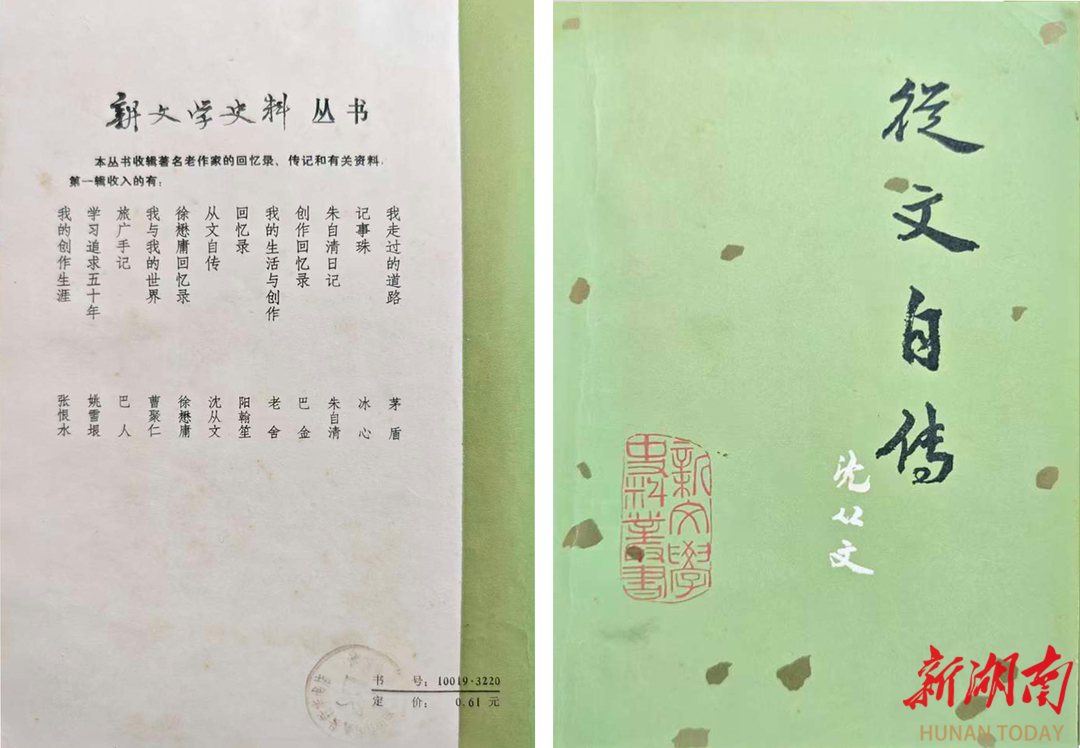 新文学史料丛书
本丛书收辑著名老作家的回忆录、传记和有关资料.
第一辑收入的有:
我走过的道路 茅盾
记事珠 冰心
朱自清日记 朱自清
创作回忆录 巴金
我的生活与创作 老舍
回忆录 阳翰笙
从文自传 沈从文
徐懋庸回忆录 徐懋庸
我与我的世界 曹聚仁
旅广手记 巴人
学习追求五十年 姚雪垠
我的创作生涯 张恨水
书号:10019·3220
定价:0.61元
從文自传
沈从文
新文學
史料叢書
新湖南
HUNAN TODAY